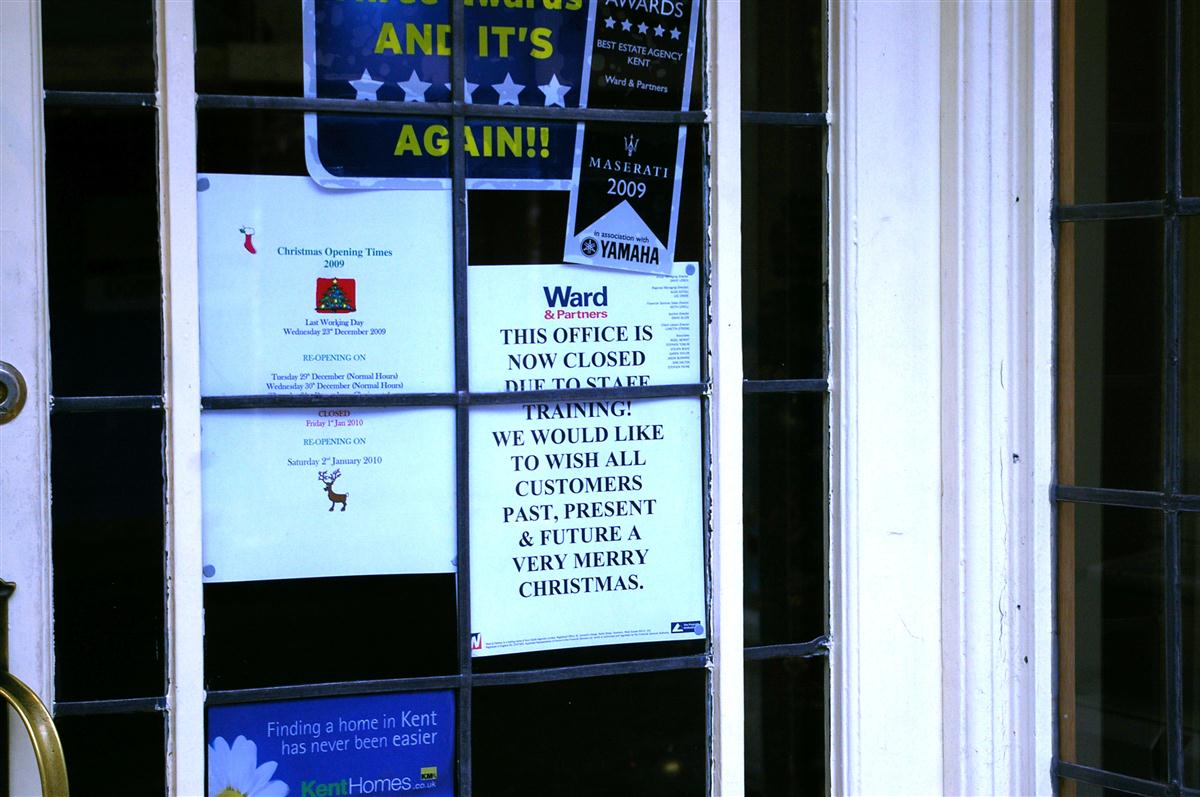 AND IT'S
AGAIN!!
AWARDS
BEST ESTATE AGENCY
KENT
Ward & Partners
MASERATI
2009
in association with
YAMAHA
Christmas Opening Times
2009
Last Working Day
Wednesday 23rd December 2009
RE-OPENING ON
Tuesday 29th December (Normal Hours)
Wednesday 30th December (Normal Hours)
CLOSED
Friday 1st Jan 2010
RE-OPENING ON
Saturday 2nd January 2010
Ward
& Partners
THIS OFFICE IS
NOW CLOSED
DUE TO STAFF
TRAINING!
WE WOULD LIKE
TO WISH ALL
CUSTOMERS
PAST, PRESENT
& FUTURE A
VERY MERRY
CHRISTMAS.
Finding a home in Kent
has never been easier
KentHomes.co.uk
KM